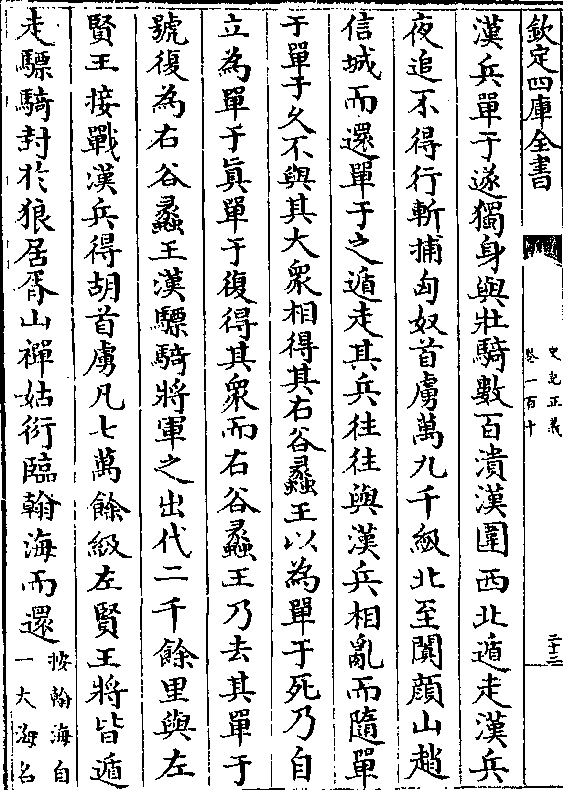 欽定四庫全書
史記正義
卷一百十
二十三
漢兵單于遂獨身與壯騎數百潰漢圍西北遁走漢兵
夜追不得行斬捕匈奴首虜萬九千級北至闐顔山趙
信城而還單于之遁走其兵往往與漢兵相亂而隨單
于單于久不與其大衆相得其右谷蠡王以為單于死乃自
立為單于真單于復得其衆而右谷蠡王乃去其單于
號復為右谷蠡王漢驃騎將軍之出代二千餘里與左
賢王接戰漢兵得胡首虜凡七萬餘級左賢王將皆遁
走驃騎封於狼居胥山禪姑衍臨翰海而還
按翰海自
一大海名